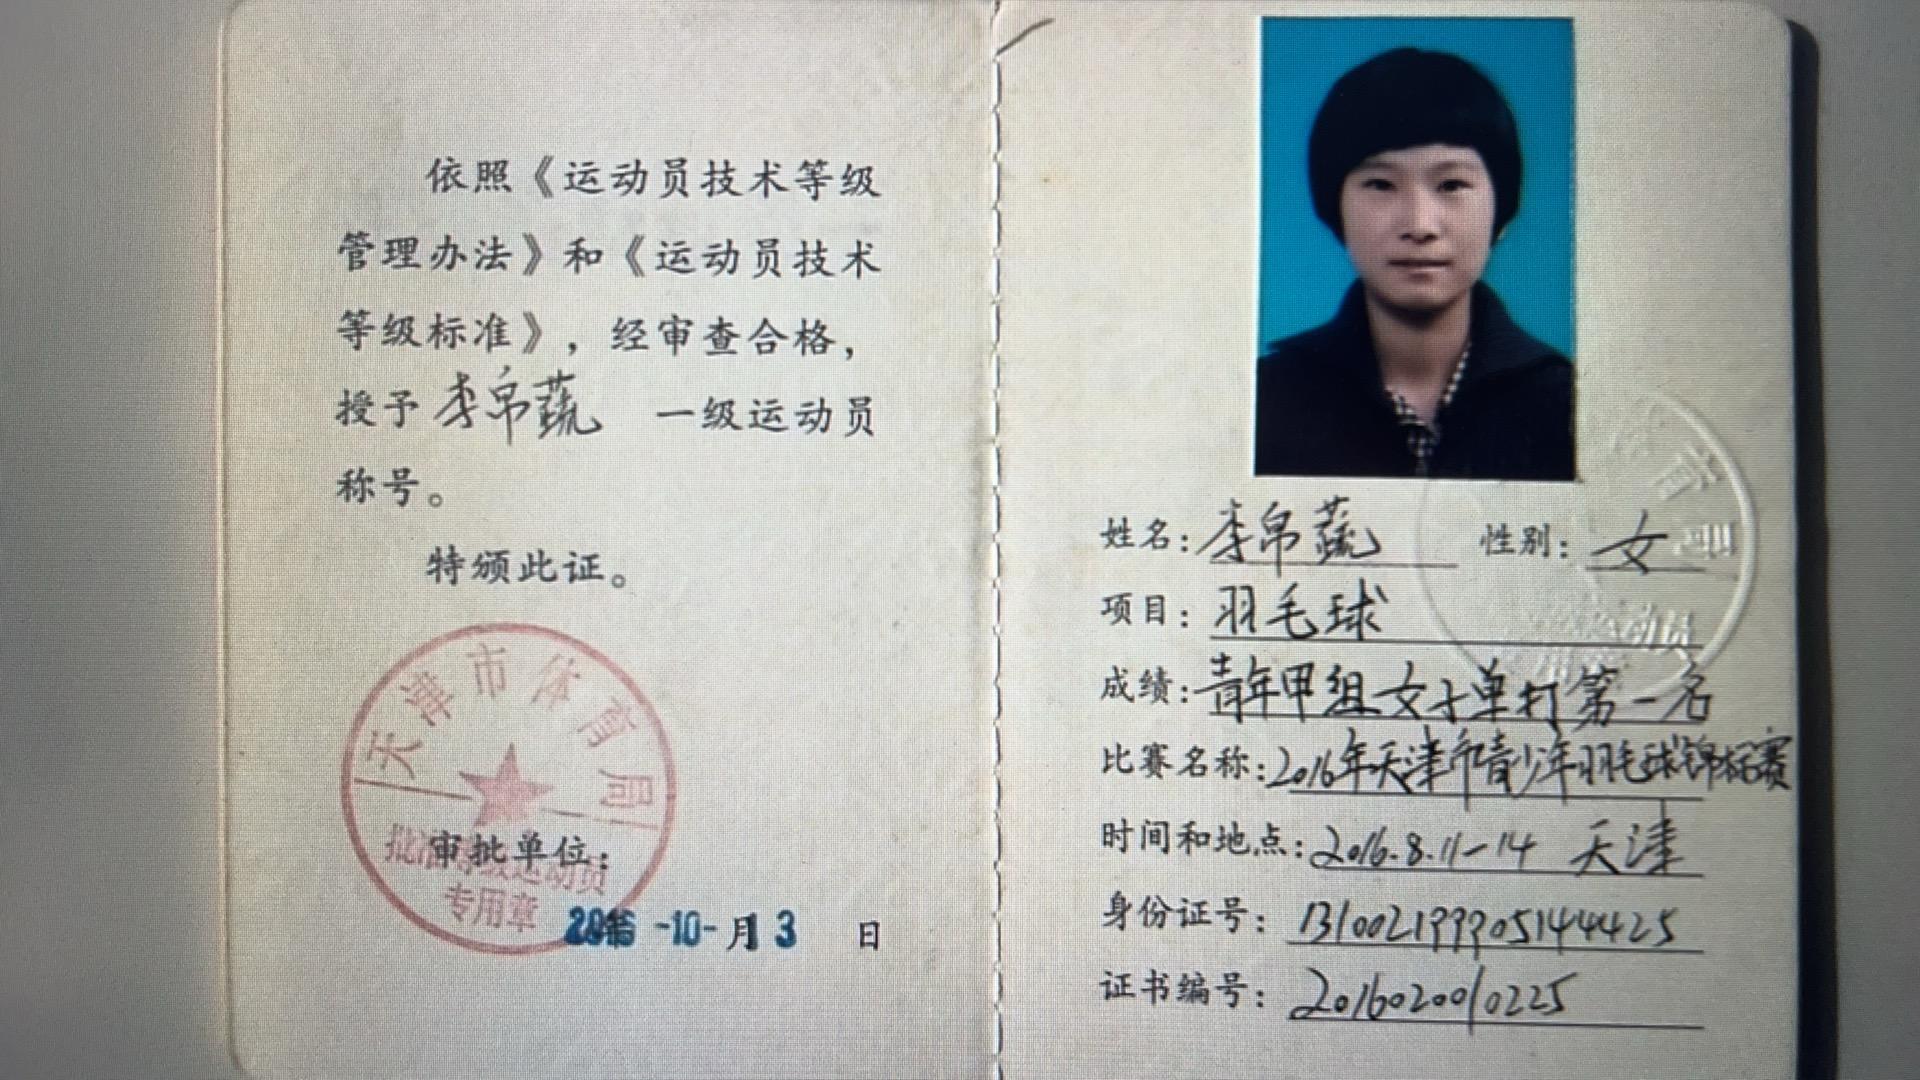 依照《运动员技术等级
管理办法》和《运动员技术
等级标准》，经审查合格，
授予 李帛蔬 一级运动员
称号。
特颁此证。
天津市体育局
批准等级运动员
专用章
审批单位：
2016 -10- 月 13 日
姓名：李帛蔬 性别：女
项目：羽毛球
成绩：青年甲组女子单打第一名
比赛名称：2016年天津市青少年羽毛球锦标赛
时间和地点：2016.8.11-14 天津
身份证号：131002199905144425
证书编号：2016020010225